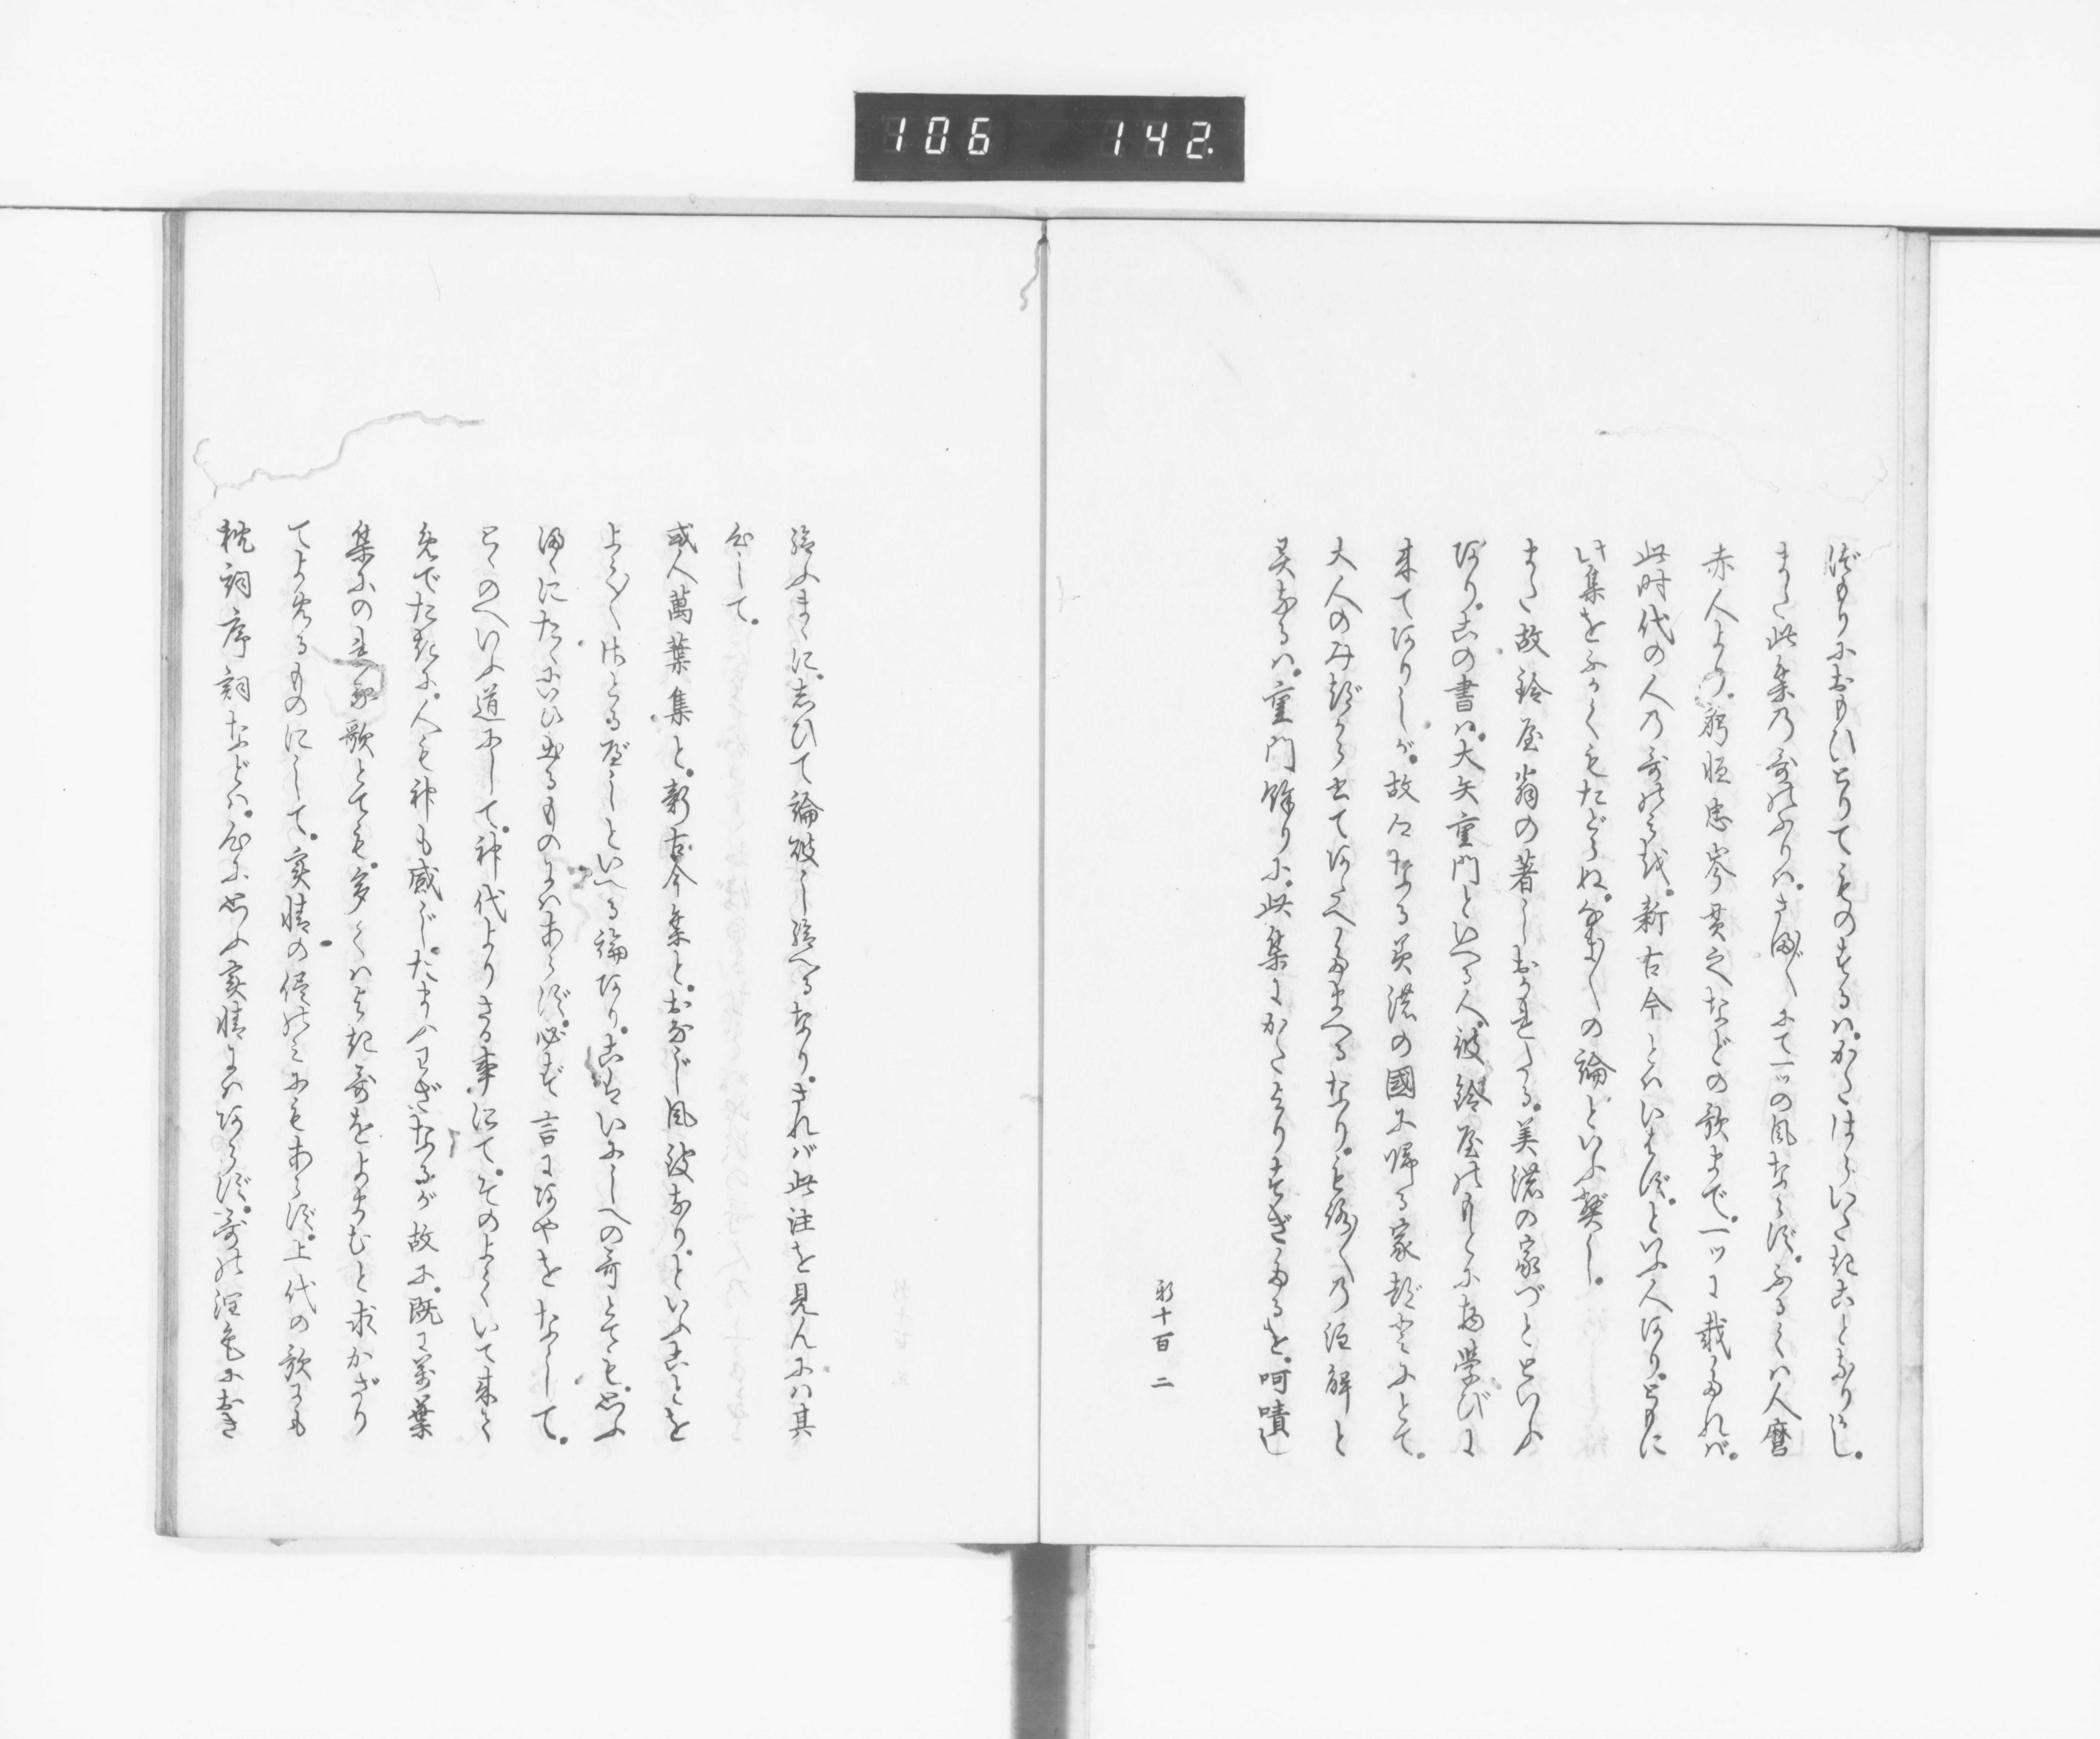 106 142.
づもりにおもひとりてものするは。かたはらいたきことなりかし。
また此集の哥のふりは。さま〴〵にて一ツの風ならず。ふるくは人麿
赤人より。躬恒忠岑貫之などの歌まで。一ツに載たれば。
此時代の人の哥のみを。新古今とはいはず。といふ人あり。ともに
此集をふかくもたどらぬ。なま〳〵の論といふ契し。
また故鈴屋翁の著しおかれたる。美濃の家づとといふ
あり。この書は。大矢重門といへる人。彼鈴屋のもとに物學びに
来てありしが。故郷なる美濃の國に帰る家づとにとて。
大人のみづから書てあたへたまへるなり。もろ〳〵の註解と
異なるは。重門餘りに。此集にかたよりすぎたるを。呵嘖し
新十百 二
給ふまゝに。しひて論破し給へるなり。されば此注を見んには其
心して。
或人萬葉集と。新古今集と。おなじ風致なり。といふことを
よく〳〵さとるべしといへる論あり。こはいにしへの哥とても。思ふ
まゝにたゞいひ出るものにはあらず。必ず言にあやをなして。
とゝのへいふ道にして。神代よりさる事にて。そのよくいで来て
めでたきに。人も神も感じたまふわざなるが故に。既に萬葉
集の主家歌とても。多くはよき哥をよまむと求かざり
てよめるものにして。実情の侭のみにもあらず。上代の歌にも
枕詞序詞などは。心に思ふ実情にはあらず。哥の潤色におき